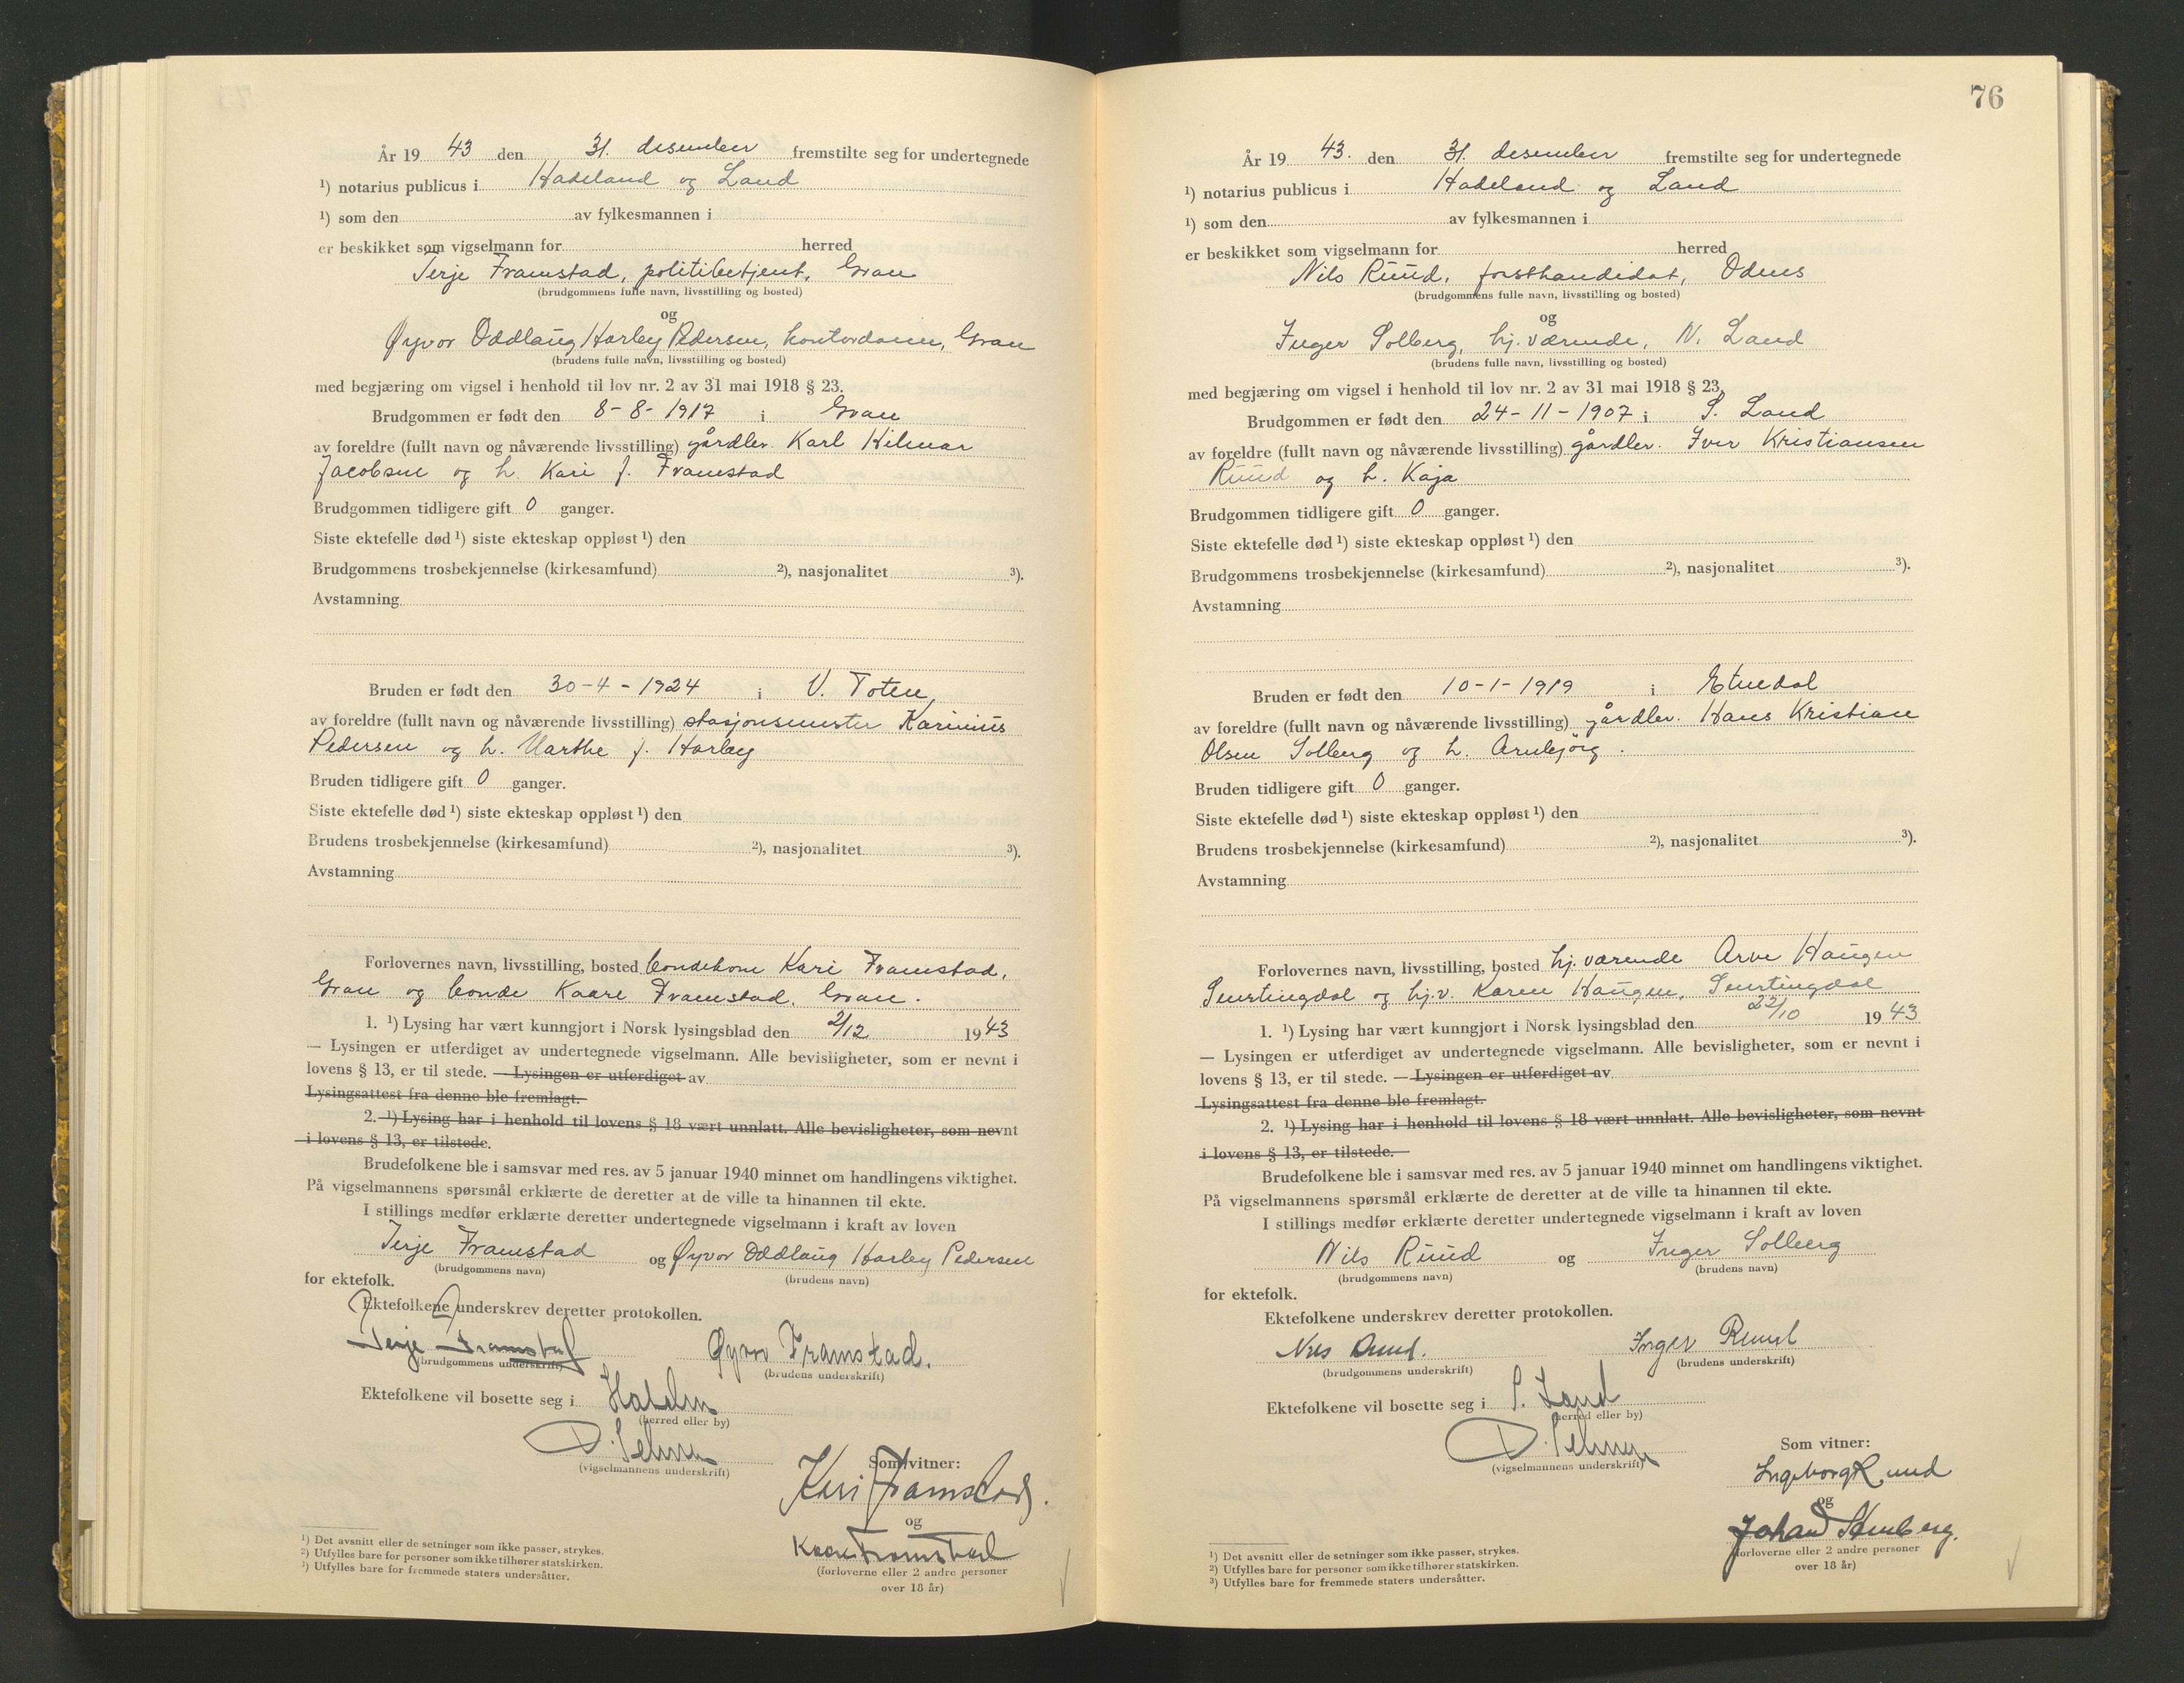 År 1943 den 31. desember fremstilte seg for undertegnede
¹) notarius publicus i Hadeland og Land
¹) som den av fylkesmannen i
er beskikket som vigselmann for herred
Terje Framstad, politibetjent, Gran
(brudgommens fulle navn, livsstilling og bosted)
og
Øyvor Oddlaug Harley Pedersen, kontordame, Gran
(brudens fulle navn, livsstilling og bosted)
med begjæring om vigsel i henhold til lov nr. 2 av 31 mai 1918 § 23.
Brudgommen er født den 8-8-1917 i Gran
av foreldre (fullt navn og nåværende livsstilling) gårdbr. Karl Hilmar
Jacobsen og h. Kari f. Framstad
Brudgommen tidligere gift 0 ganger.
Siste ektefelle død ¹) siste ekteskap oppløst ¹) den
Brudgommens trosbekjennelse (kirkesamfund) ²), nasjonalitet ³).
Avstamning
Bruden er født den 30-4-1924 i V. Toten,
av foreldre (fullt navn og nåværende livsstilling) stasjonsmester Karinius
Pedersen og h. Marthe f. Harley
Bruden tidligere gift 0 ganger.
Siste ektefelle død ¹) siste ekteskap oppløst ¹) den
Brudens trosbekjennelse (kirkesamfund) ²), nasjonalitet ³).
Avstamning
Forlovernes navn, livsstilling, bosted bondekone Kari Framstad,
Gran og bonde Kaare Framstad, Gran.
1. ¹) Lysing har vært kunngjort i Norsk lysingsblad den 2/12 1943
— Lysingen er utferdiget av undertegnede vigselmann. Alle bevisligheter, som er nevnt i
lovens § 13, er til stede. — Lysingen er utferdiget av
Lysingsattest fra denne ble fremlagt.
2. ¹) Lysing har i henhold til lovens § 18 vært unnlatt. Alle bevisligheter, som nevnt
i lovens § 13, er tilstede.
Brudefolkene ble i samsvar med res. av 5 januar 1940 minnet om handlingens viktighet.
På vigselmannens spørsmål erklærte de deretter at de ville ta hinannen til ekte.
I stillings medfør erklærte deretter undertegnede vigselmann i kraft av loven
Terje Framstad og Øyvor Oddlaug Harley Pedersen
(brudgommens navn) (brudens navn)
for ektefolk.
Ektefolkene underskrev deretter protokollen.
Terje Framstad Øyvor Framstad.
(brudgommens underskrift) (brudens underskrift)
Ektefolkene vil bosette seg i
(herred eller by)
(vigselmannens underskrift)
Som vitner:
Kari Framstad.
og
Kaare Framstad
(forloverne eller 2 andre personer
over 18 år)
¹) Det avsnitt eller de setninger som ikke passer, strykes.
²) Utfylles bare for personer som ikke tilhører statskirken.
³) Utfylles bare for fremmede staters undersåtter.
76
År 1943. den 31. desember fremstilte seg for undertegnede
¹) notarius publicus i Hadeland og Land
¹) som den av fylkesmannen i
er beskikket som vigselmann for herred
Nils Ruud, forstkandidat, Odnes
(brudgommens fulle navn, livsstilling og bosted)
og
Inger Solberg, hj.værende, N. Land
(brudens fulle navn, livsstilling og bosted)
med begjæring om vigsel i henhold til lov nr. 2 av 31 mai 1918 § 23.
Brudgommen er født den 24-11-1907 i S. Land
av foreldre (fullt navn og nåværende livsstilling) gårdbr. Iver Kristiansen
Ruud og h. Kaja
Brudgommen tidligere gift 0 ganger.
Siste ektefelle død ¹) siste ekteskap oppløst ¹) den
Brudgommens trosbekjennelse (kirkesamfund) ²), nasjonalitet ³).
Avstamning
Bruden er født den 10-1-1919 i Etnedal
av foreldre (fullt navn og nåværende livsstilling) gårdbr. Hans Kristian
Olsen Solberg og h. Arnbjörg.
Bruden tidligere gift 0 ganger.
Siste ektefelle død ¹) siste ekteskap oppløst ¹) den
Brudens trosbekjennelse (kirkesamfund) ²), nasjonalitet ³).
Avstamning
Forlovernes navn, livsstilling, bosted hj.værende Arve Haugen
Snertingdal og hj.v. Karen Haugen, Snertingdal
1. ¹) Lysing har vært kunngjort i Norsk lysingsblad den 22/10 1943
— Lysingen er utferdiget av undertegnede vigselmann. Alle bevisligheter, som er nevnt i
lovens § 13, er til stede. — Lysingen er utferdiget av
Lysingsattest fra denne ble fremlagt.
2. ¹) Lysing har i henhold til lovens § 18 vært unnlatt. Alle bevisligheter, som nevnt
i lovens § 13, er tilstede.
Brudefolkene ble i samsvar med res. av 5 januar 1940 minnet om handlingens viktighet.
På vigselmannens spørsmål erklærte de deretter at de ville ta hinannen til ekte.
I stillings medfør erklærte deretter undertegnede vigselmann i kraft av loven
Nils Ruud og Inger Solberg
(brudgommens navn) (brudens navn)
for ektefolk.
Ektefolkene underskrev deretter protokollen.
Nils Ruud. Inger Ruud
(brudgommens underskrift) (brudens underskrift)
Ektefolkene vil bosette seg i S. Land
(herred eller by)
(vigselmannens underskrift)
Som vitner:
Ingeborg Ruud
og
Johan Stenberg.
(forloverne eller 2 andre personer
over 18 år)
¹) Det avsnitt eller de setninger som ikke passer, strykes.
²) Utfylles bare for personer som ikke tilhører statskirken.
³) Utfylles bare for fremmede staters undersåtter.